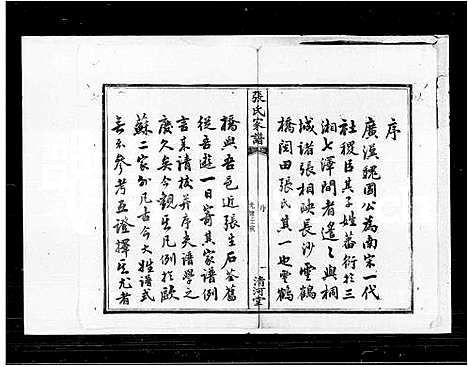 序
廣漢魏國公為南宋一代
社稷臣其子姓蕃衍於三
湘七澤間者遙遙與桐
城諸張相映長沙雲鶴
橋閔田張氏其一也雲鶴
張氏家譜
序
一
清河堂
橋與吾邑近張生石荃舊
從吾遊一日寄其家譜例
言來請校并序夫譜學之
廢久矣今觀其凡例於歐
蘇二家外凡古今大姓譜式
無不參考互證擇其尤者